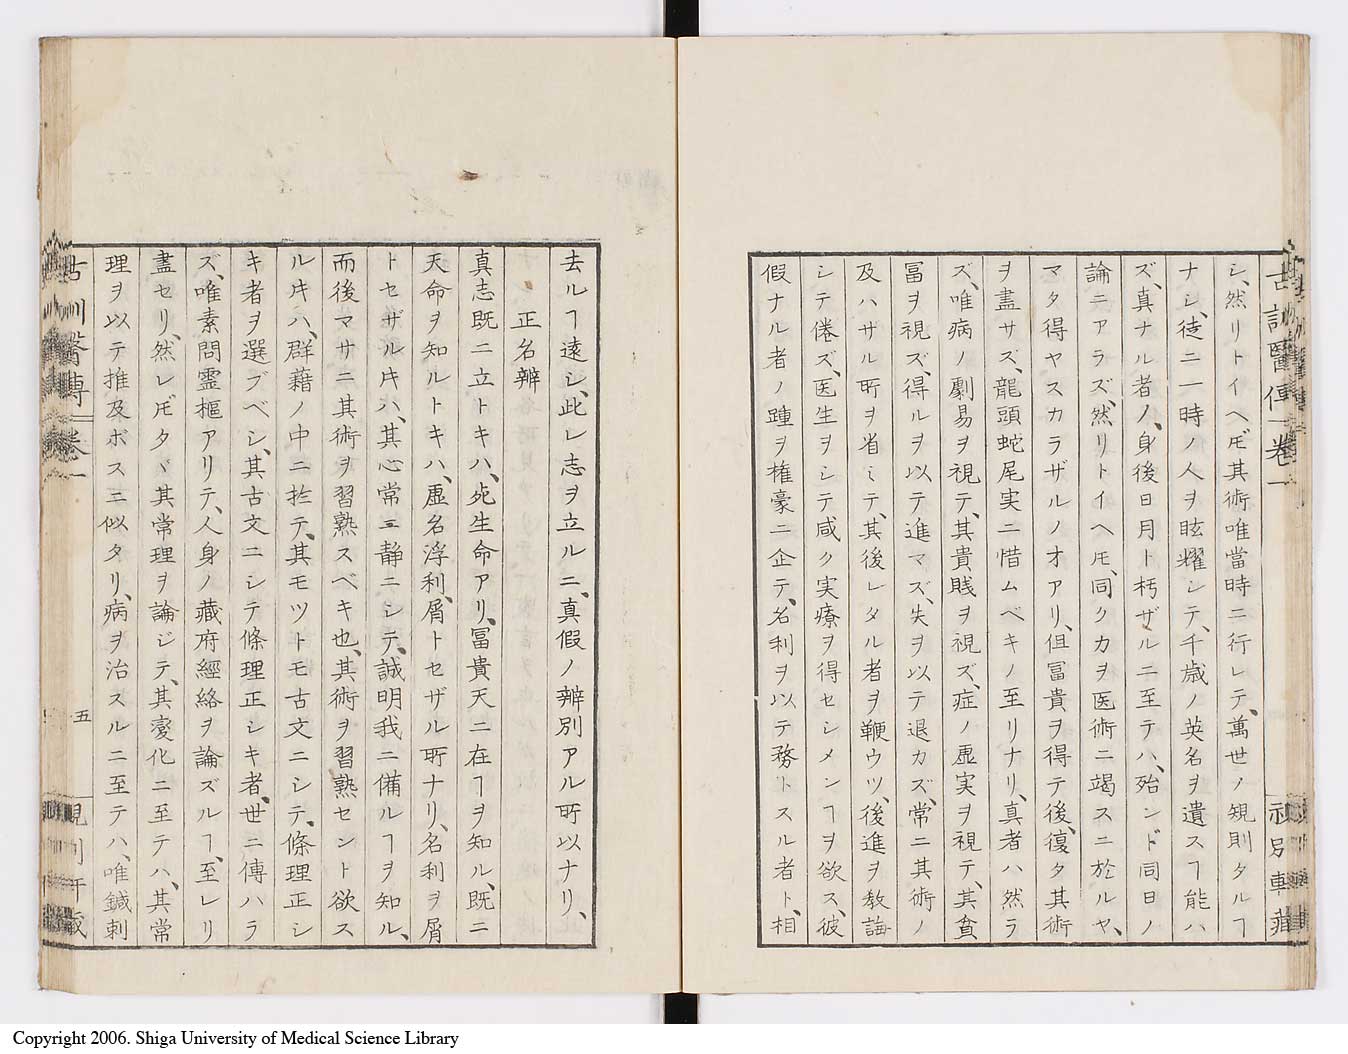 古訓醫傳 卷一
シ、然リトイヘ𪜈其術唯當時ニ行レテ、萬世ノ規則タルヿ
ナシ、徒ニ一時ノ人ヲ眩耀シテ、千歳ノ英名ヲ遺スヿ能ハ
ズ、真ナル者ノ、身後日月ト朽ザルニ至テハ、殆ンド同日ノ
論ニアラズ、然リトイヘ𪜈、同クカヲ医術ニ竭スニ於ルヤ、
マタ得ヤスカラザルノオアリ、但冨貴ヲ得テ後、復タ其術
ヲ盡サズ、龍頭蛇尾実ニ惜ムベキノ至リナリ、真者ハ然ラ
ズ、唯病ノ劇易ヲ視テ、其貴賎ヲ視ズ、症ノ虚実ヲ視テ、其貪
冨ヲ視ズ、得ルヲ以テ進マズ、失ヲ以テ退カズ、常ニ其術ノ
及ハザル所ヲ省ミテ、其後レタル者ヲ鞭ウツ、後進ヲ教誨
シテ倦ズ、医生ヲシテ咸ク実療ヲ得セシメンヿヲ欲ス、彼
假ナル者ノ踵ヲ権豪ニ企テ、名利ヲ以テ務トスル者ト、相
去ルヿ遠シ、此レ志ヲ立ルニ、真假ノ辨別アル所以ナリ、
正名辨
真志既ニ立トキハ、死生命アリ、冨貴天ニ在ヿヲ知ル、既ニ
天命ヲ知ルトキハ、虚名浮利、屑トセザル所ナリ、名利ヲ屑
トセザル𪜈ハ、其心常ニ静ニシテ、誠明我ニ備ルヿヲ知ル、
而後マサニ其術ヲ習熟スベキ也、其術ヲ習熟セント欲ス
ル𪜈ハ、群藉ノ中ニ於テ、其モツトモ古文ニシテ、條理正シ
キ者ヲ選ブベシ、其古文ニシテ條理正シキ者、世ニ傳ハラ
ズ、唯素問霊樞アリテ、人身ノ藏府經絡ヲ論ズルヿ、至レリ
盡セリ、然レ𪜈タヾ其常理ヲ論ジテ、其変化ニ至テハ、其常
理ヲ以テ推及ボスニ似タリ、病ヲ治スルニ至テハ、唯鍼刺
古訓醫傳 卷一 五
Copyright 2006. Shiga University of Medical Science Library